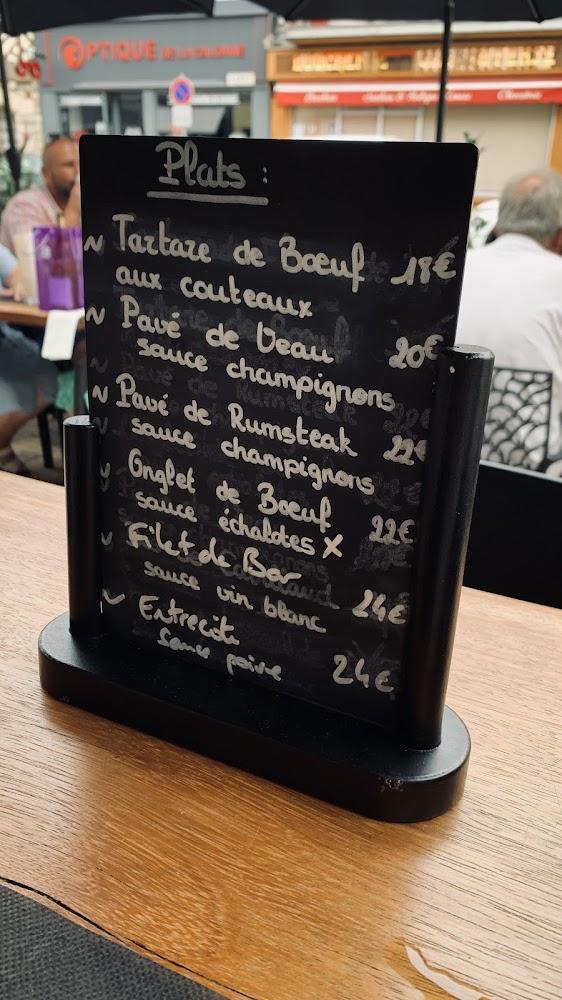 OPTIQUE DE LA CHALONNE
Plats :
~ Tartare de Bœuf 18€
aux couteaux
~ Pavé de Veau 20€
sauce champignons
~ Pavé de Rumsteak 22€
sauce champignons
~ Onglet de Bœuf 22€
sauce échalotes X
~ Filet de Bar 24€
sauce vin blanc
~ Entrecôte 24€
sauce poivre